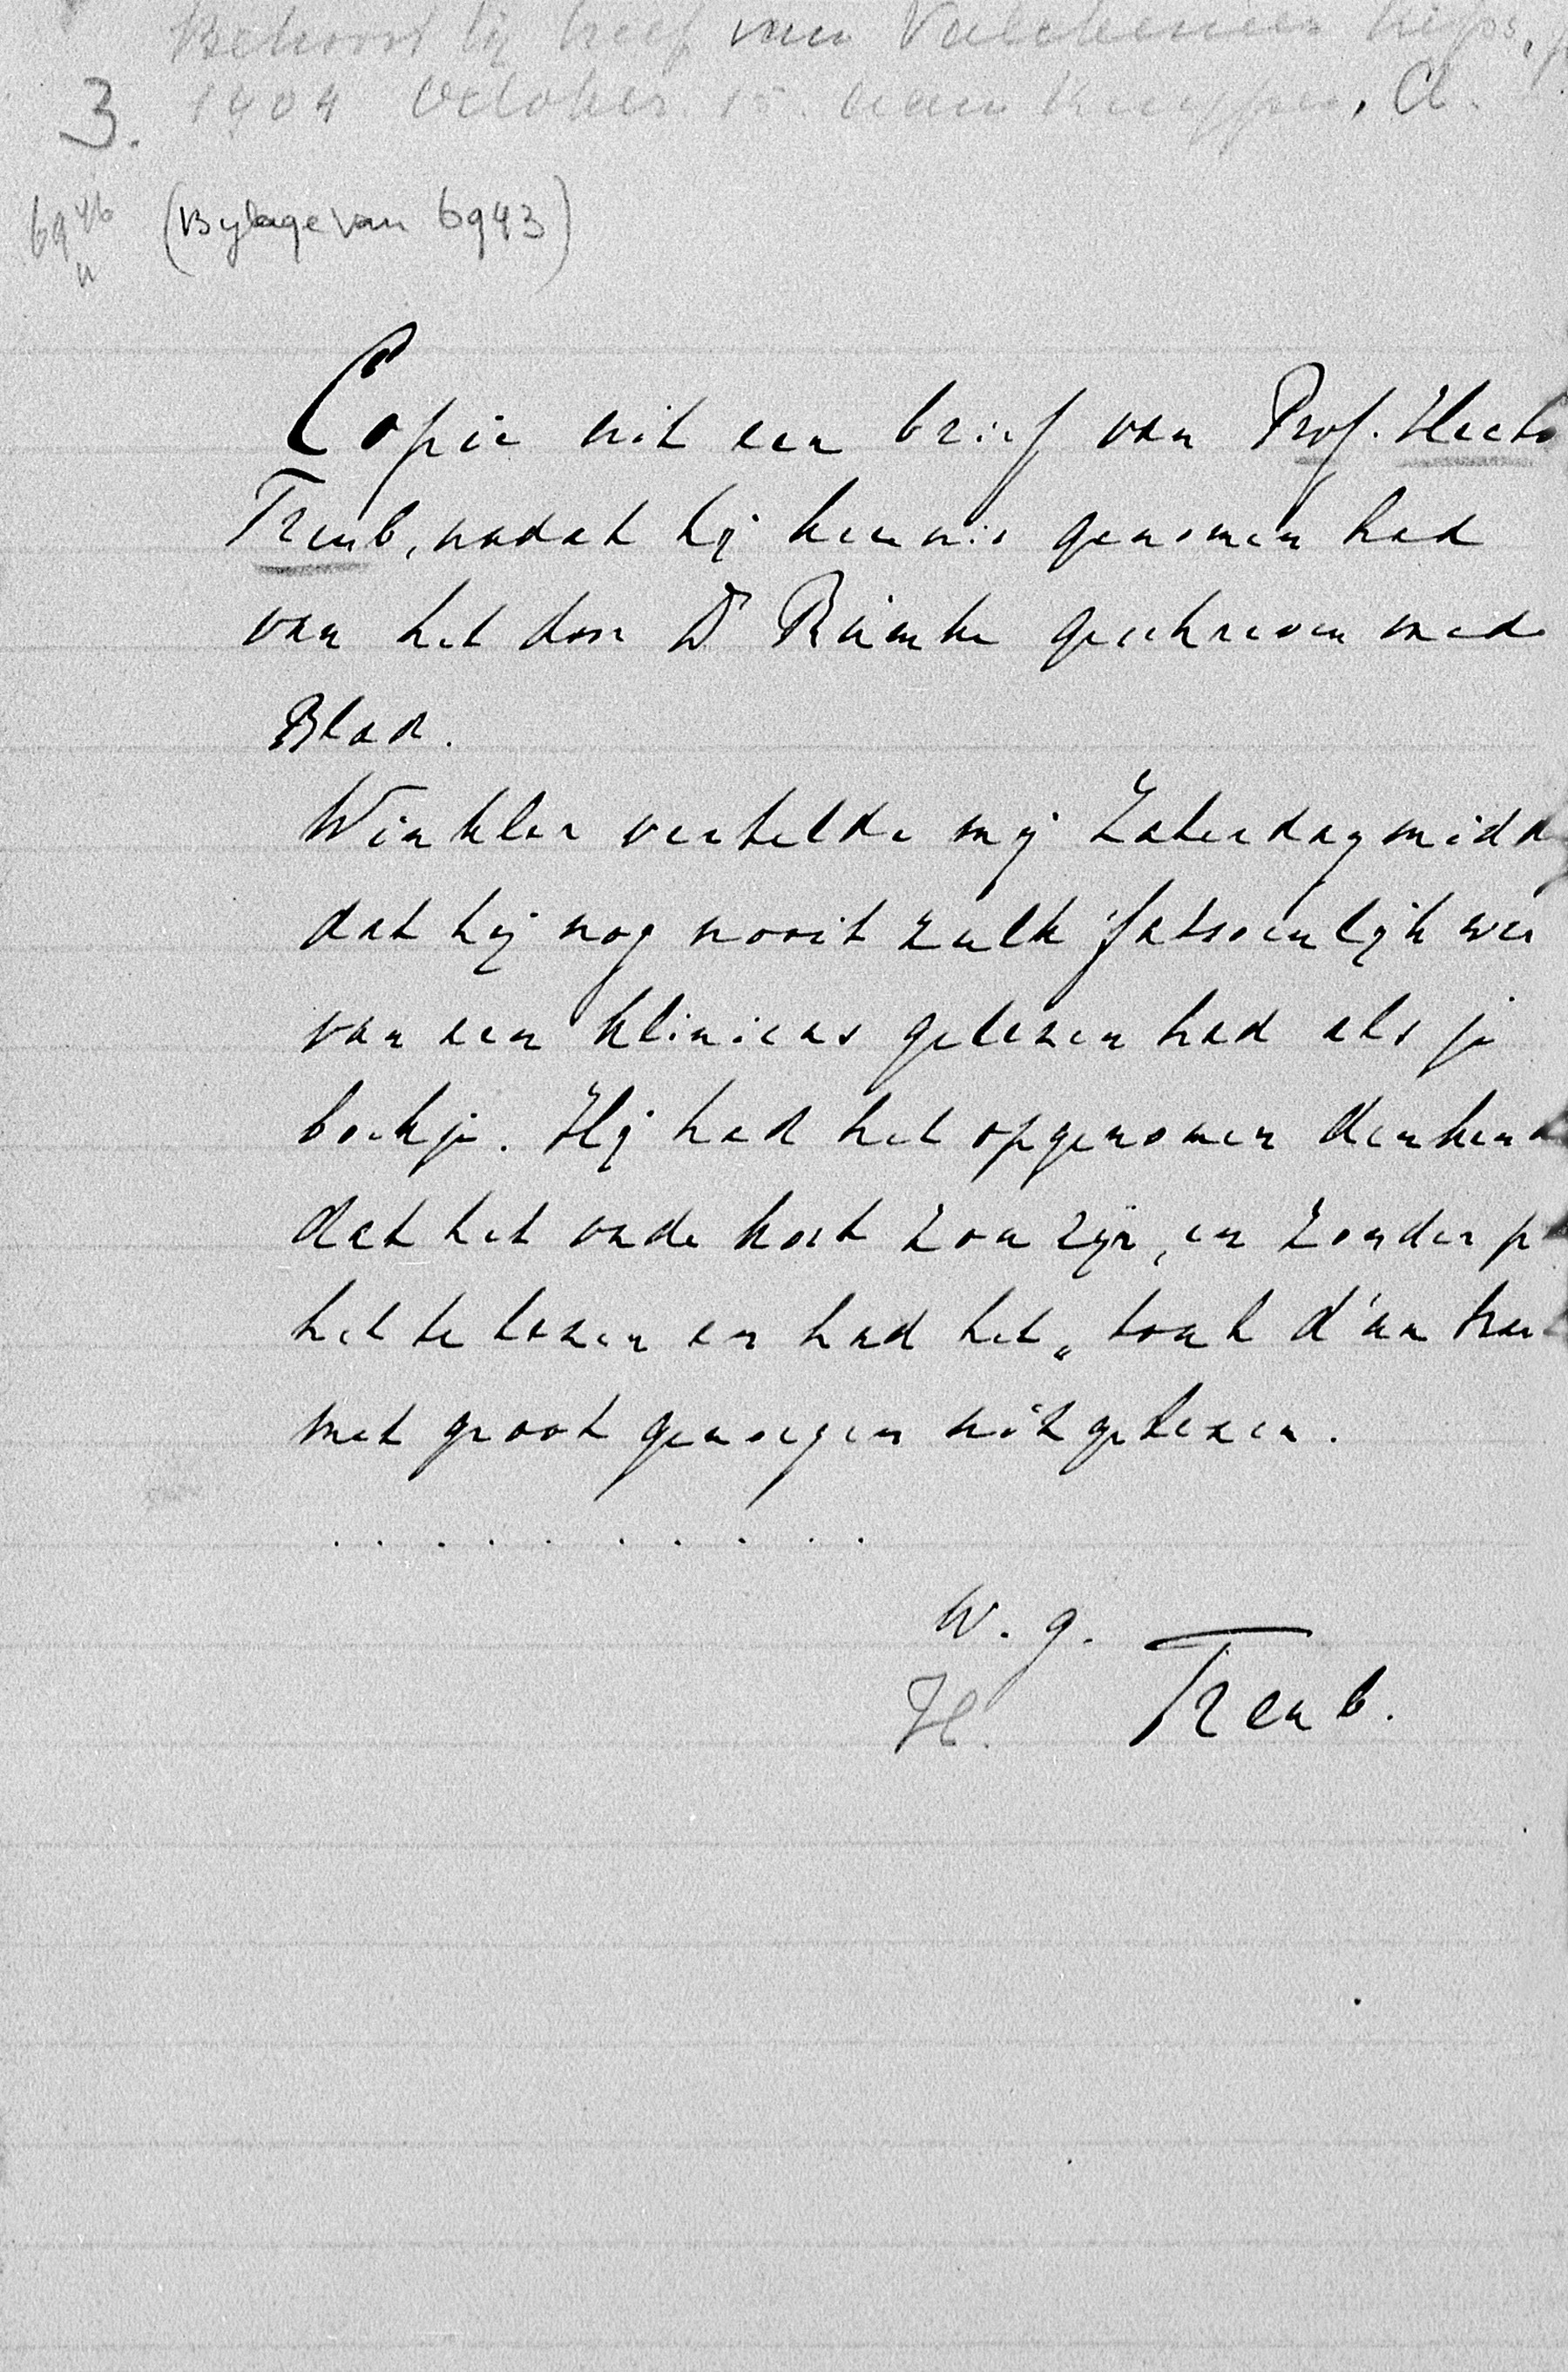 Behoort bij brief van Valckenier Kips,
1904 October 15. aan Kuyper, A.
3.
(Bylage van 6943)
Copie uit een brief van Prof. Hecto
Treub, nadat hij kennis genomen had
van het door Dr Rümke geschreven med.
Blad.
Winkler vertelde mij Zaterdagmidd
dat hij nog nooit zulk fatsoenlijk wer
van een klinicus gelezen had als je
boekje. Hij had het opgenomen denkend
dat het oude kost zou zijn, en zonder p
het te lezen en had het „tout d'un trai
met groot genoegen uitgelezen.
. . . . . . . . . .
W. g.
H. Treub.